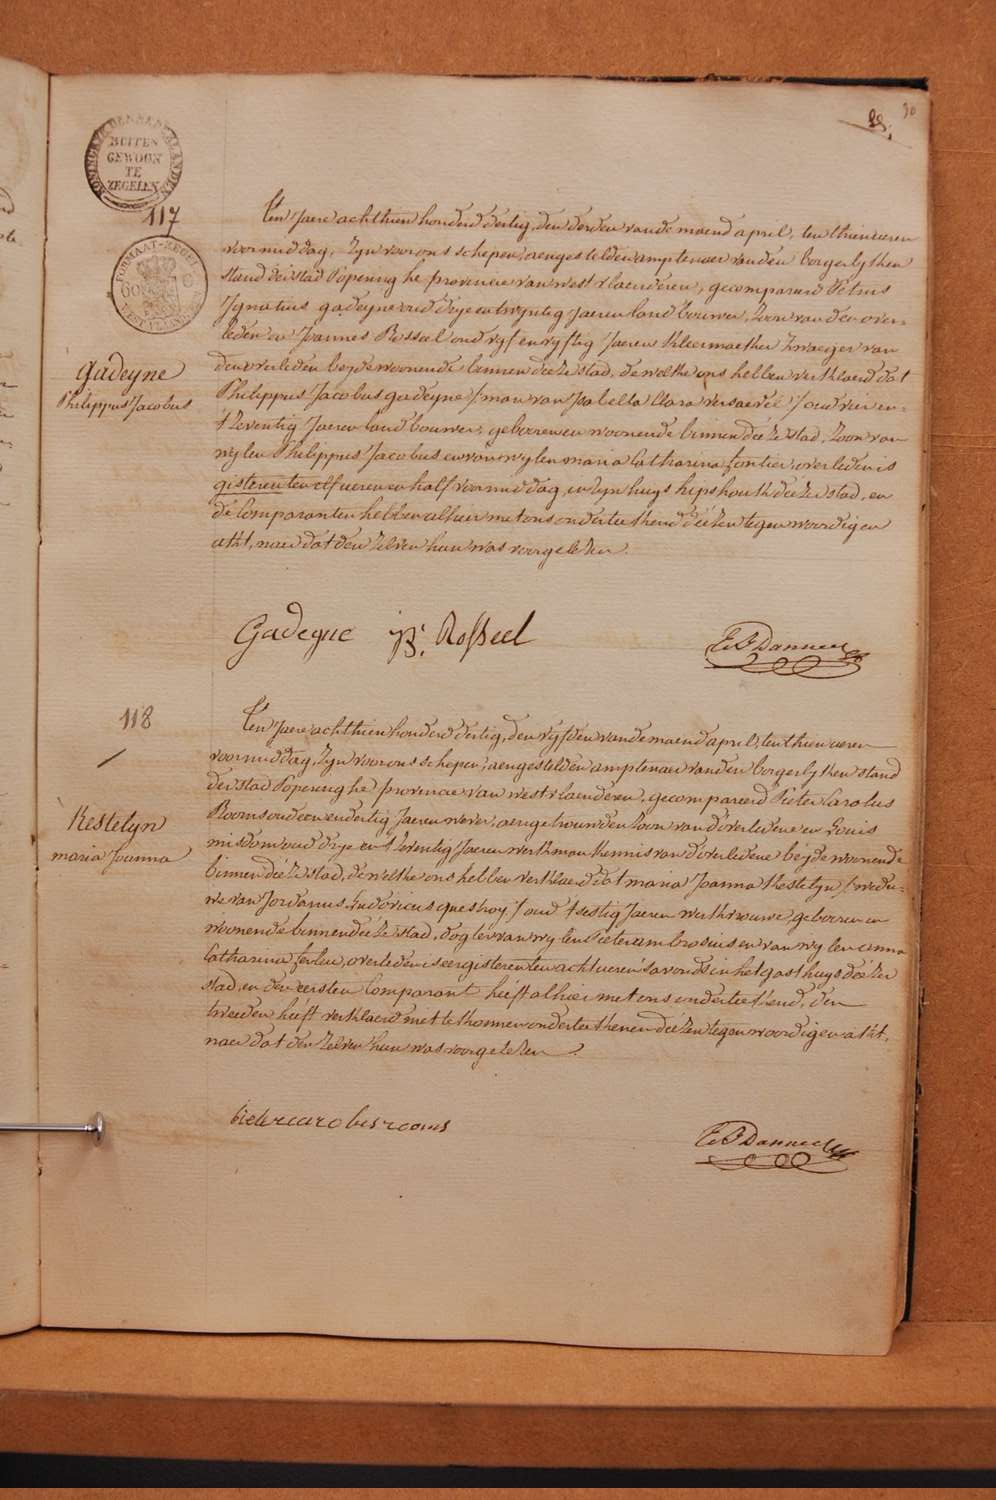 30
29.
KONINGRYK DER NEDERLANDEN
BUITEN
GEWOON
TE
ZEGELEN
117
FORMAAT-ZEGEL
WEST VLAANDEREN
Gadeyne
Philippus Jacobus
Ten Jaere achthien honderd dertig, den derden van de maend april, ten thien ueren
voormiddag, zyn voor ons schepen, aengestelden amptenaer van den borgerlyken
stand der stad Poperinghe provincie van westvlaenderen, gecompareerd Petrus
Ignatius gadeyne oud drye en twyntig Jaeren landbouwer, Zoon van den over-
leden en Joannes Rosseel oud vyf en vyftig Jaeren kleermaeker Zwaeger van
den overleden beyde woonende binnen deéze stad, de welke ons hebben verklaerd dat
Philippus Jacobus gadeyne / man van Isabella Clara versaevel / oud vier en
t'zeventig Jaeren landbouwer, gebooren en woonende binnen deéze stad, Zoon van
wylen Philippus Jacobus en van wylen maria Catharina fontier, overleden is
gisteren ten elf ueren en half voormiddag, in zyn huys hipshoek deézer stad, en
de Comparanten hebben alhier met ons onderteekend deézen tegenwoordigen
akt, naer dat den zelven hun was voorgelezen.
Gadeyne JB. Rosseel
118
Kestelyn
maria Joanna
Ten Jaere achthien honderd dertig, den vyfden van de maend april, ten thien ueren
voormiddag, Zyn voor ons schepen, aengestelden amptenaer van den borgerlyken stand
der stad Poperinghe provincie van westvlaenderen, gecompareerd Pieter Carolus
Rooms oud een en dertig Jaeren wever, aengetrouwden Zoon van d'overledene en Louis
misdom oud drye en t'zeventig Jaeren werkman kennis van d'overledene béyde woonende
binnen deéze stad, de welke ons hebben verklaerd dat maria Joanna Kestelyn / wedu-
we van Jordanus Ludovicus questroy / oud t'sestig Jaeren werkvrouwe gebooren en
woonende binnen deéze stad, dogter van wylen Pieter ambrosius en van wylen anna
Catharina ferlin, overleden is eergisteren ten acht ueren s'avonds in het gasthuys deézer
stad, en den eersten Comparant heéft alhier met ons onderteekend, den
tweeden heéft verklaerd met te konnen onderteekenen deézen tegenwoordigen akt,
naer dat den zelven hun was voorgelezen.
Pieter carolus rooms